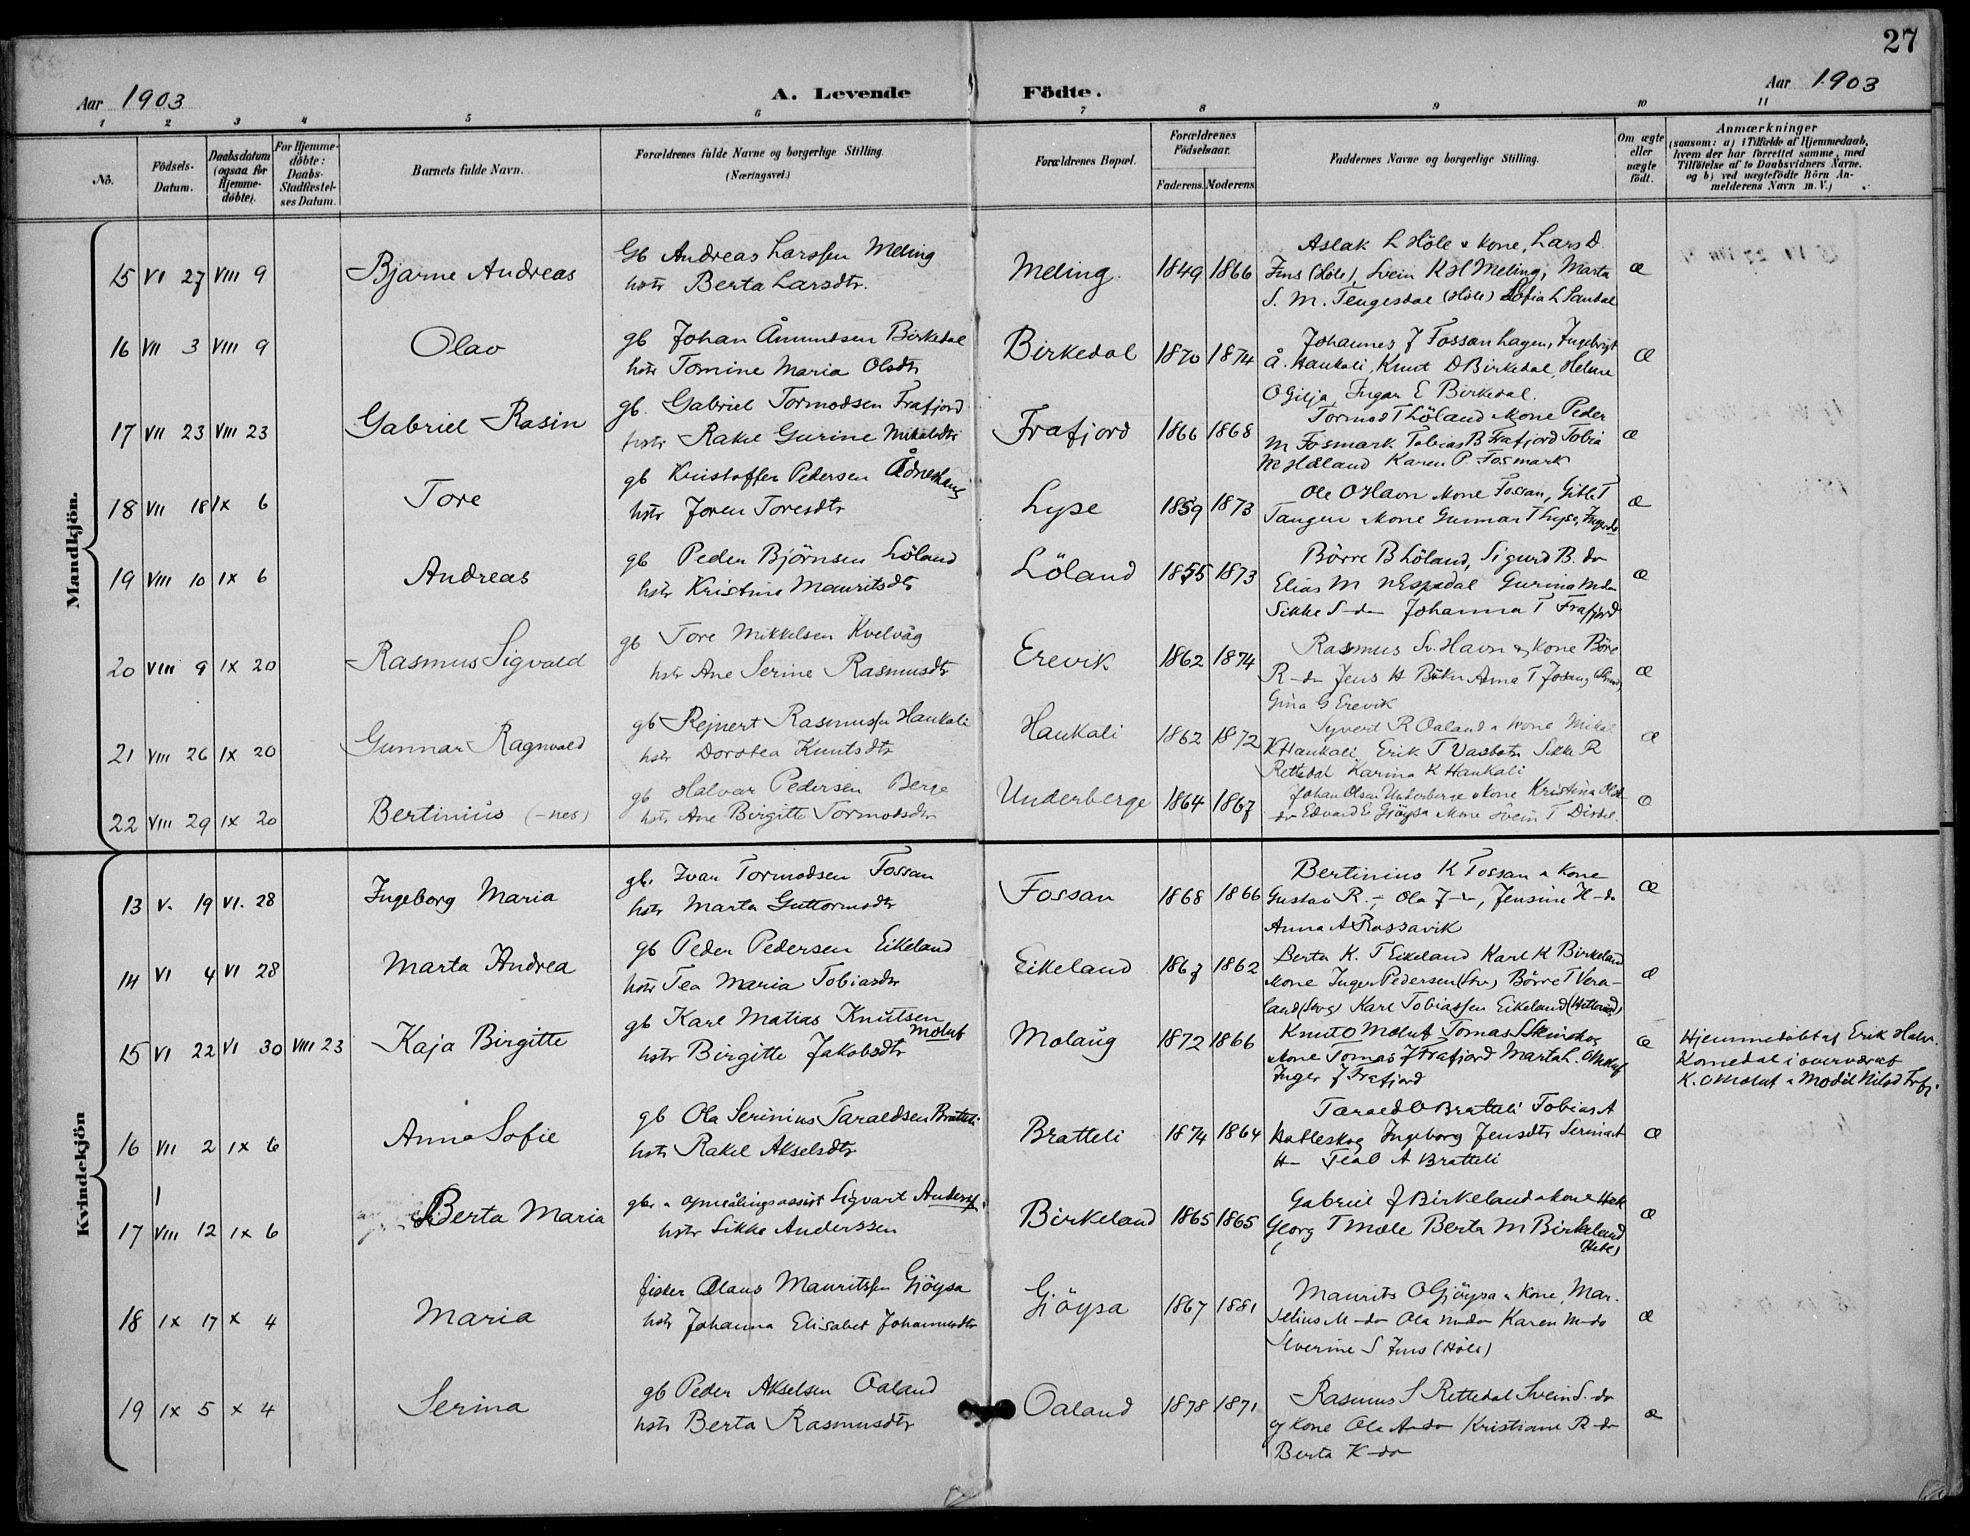 27
Aar 1903
A. Levende Födte.
Aar 1903
1 2 3 4 5 6 7 8 9 10 11
No.
Födsels-
Datum.
Daabsdatum
(ogsaa for
Hjemme-
döbte).
For Hjemme-
döbte:
Daabs-
Stadfæstel-
ses Datum.
Barnets fulde Navn.
Forældrenes fulde Navne og borgerlige Stilling
(Næringsvei.)
Forældrenes Bopæl.
Forældrenes
Födselsaar.
Faderens. Moderens.
Faddernes Navne og borgerlige Stilling.
Om ægte
eller
uægte
födt.
Anmærkninger
(saasom: a) i Tilfælde af Hjemmedaab,
hvem der har forrettet samme, med
Tilföielse af to Daabsvidners Navne.
og b) ved uægtefödte Börn An-
melderens Navn m. V.)
Mandkjön.
15 VI 27 VIII 9 Bjarne Andreas
Gb Andreas Larssen Meling
hstr Berta Larsdtr.
Meling. 1849 1866
Aslak L Höle & kone, Lars D.
Ims (Höle), Svein K H Meling, Marta
S. M. Tengesdal (Höle) Sofia L Sandal
Æ
16 VII 3 VIII 9 Olav
gb Johan Åmundsen Birkedal
hstr Tomine Maria Olsdtr
Birkedal 1870 1874
Johannes J Fossanhagen, Ingebrigt
Å. Haukali, Knut D Birkedal, Helene
O Gilja, Inger E Birkedal.
Æ
17 VII 23 VIII 23 Gabriel Rasin
gb. Gabriel Tormodsen Frafjord
hstr Rakel Gurine Mikalsdtr
Frafjord 1866 1868
Tormod T Löland & kone Peder
M Fosmark Tobias B Frafjord Tobia
M Håland Karen P. Fosmark
Æ
18 VII 18 IX 6 Tore
gb Kristoffer Pedersen Ådneshaug
hstr Joren Toresdtr
Lyse 1859 1873
Ole O Havn & kone Fossan, Gitle T
Tangen & kone Gunnar T Lyse, Inger do
Æ
19 VIII 10 IX 6 Andreas
gb Peder Björnsen Löland
hstr Kristine Mauritsdtr
Löland 1855 1873
Börre B Löland, Sigurd B. do
Elias M N Espedal Gurina M do
Sikke S - do Johanna T Frafjord
Æ
20 VIII 9 IX 20 Rasmus Sigvald
gb Tore Mikkelsen Kvelvåg
hstr Ane Serine Rasmusdtr
Erevik 1862 1874
Rasmus Sv. Havn og kone Böre
R - do Jens H Anna T Josang
Gina G Erevik
Æ
21 VIII 26 IX 20 Gunnar Ragnvald
gb Rejnert Rasmussen Haukali
hstr Dorotea Knutsdtr
Haukali 1862 1872
Syvert R Oaland & kone Mikal
K Haukali, Erik T Vasbotn Sikke R
Rettedal Karina K Haukali
Æ
22 VIII 29 IX 20 Bertinius (-nes)
gb Halvar Pedersen Berge
hstr Ane Birgitte Tormodsdtr
Underberge 1864 1867
Johan Olsen Underberge & kone Kristina
do Edvard E Gjöysa & kone Svein T Dirdal
Æ
Kvindekjön
13 V. 19 VI. 28 Ingeborg Maria
gb. Ivar Tormodsen Fossan
hstr Marta Guttormsdtr
Fossan 1868 1866
Bertinius K Fossan & kone
Gustav R. -, Ola J -, Jensine H - do
Anna A Rossavik
Æ
14 VI 4 VI 28 Marta Andrea
gb Peder Pedersen Eikeland
hstr Tea Maria Tobiasdtr
Eikeland 1867 1862
Berta K. T Eikeland Karl K Birkeland
& kone Inger Pedersen (Stv) Börre T Vera-
land (Stvg) Karl Tobiassen Eikeland (Hetland)
Æ
15 VI 22 VI 30 VIII 23 Kaja Birgitte
gb Karl Matias Knutsen
Molut
hstr Birgitte Jakobsdtr
Molaug 1872 1866
Knut O Molut Tomas S
& kone Tomas J Frafjord Marta L. O Molut
Inger J Frafjord
Æ
Hjemmedöbt af Erik Halv.
Komedal i overvær af
K. O Molut & Modil Nilsd Frfj.
16 VII 2 IX 6 Anna Sofie
gb Ola Serinius Taraldsen Bratteli
hstr Rakel Akselsdtr
Bratteli 1874 1864
Tarald O Bratteli Tobias A
Ingeborg Jensdtr Serina
H - Tea O A Bratteli
Æ
17 VIII 12 IX 6 Berta Maria
gbr. & opmålingsassist Sigvart Anderss.
hstr Sikke Anderssen
Birkeland 1865 1865
Gabriel J Birkeland & kone
Georg T Mæle Berta M Birkeland
(Hetl)
Æ
18 IX 17 X 4 Maria
fisker Olaus Mauritssen Gjöysa
hstr Johanna Elisabet Johannesdtr
Gjöysa 1867 1881
Maurits O Gjöysa & kone, Mar-
selius M - do Ola M - do Karen M - do
Severine S Ims (Höle)
Æ
19 IX 5 X 4 Serina
gb Peder Akselsen Oaland
hstr Berta Rasmusdtr
Oaland 1878 1871
Rasmus S Rettedal Svein S. do
og kone Ole A - do Kristiane R - do
Berta K - do
Æ